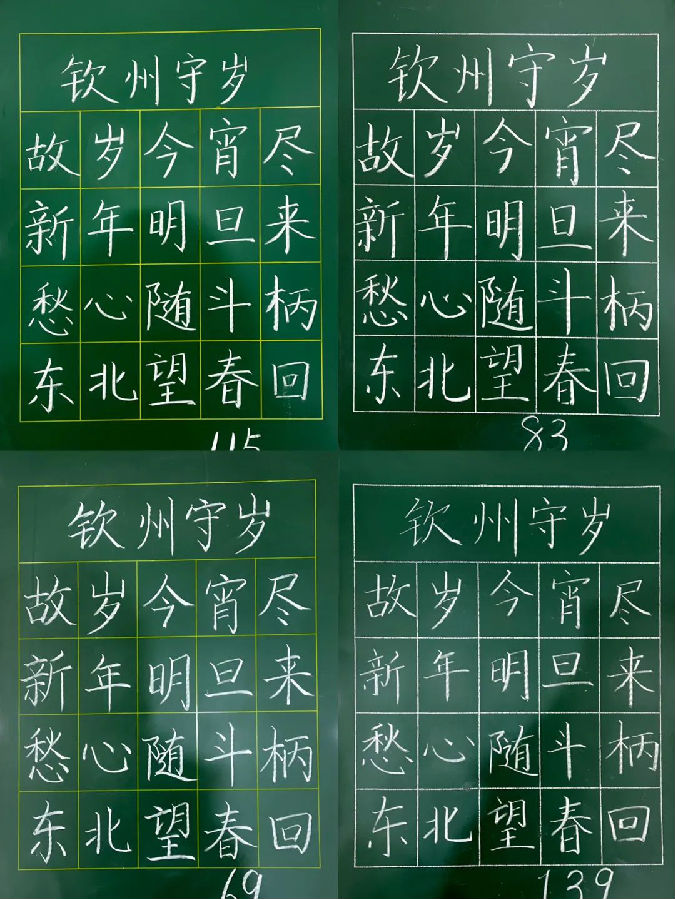 钦州守岁
故岁今宵尽
新年明旦来
愁心随斗柄
东北望春回
115
钦州守岁
故岁今宵尽
新年明旦来
愁心随斗柄
东北望春回
83
钦州守岁
故岁今宵尽
新年明旦来
愁心随斗柄
东北望春回
69
钦州守岁
故岁今宵尽
新年明旦来
愁心随斗柄
东北望春回
139